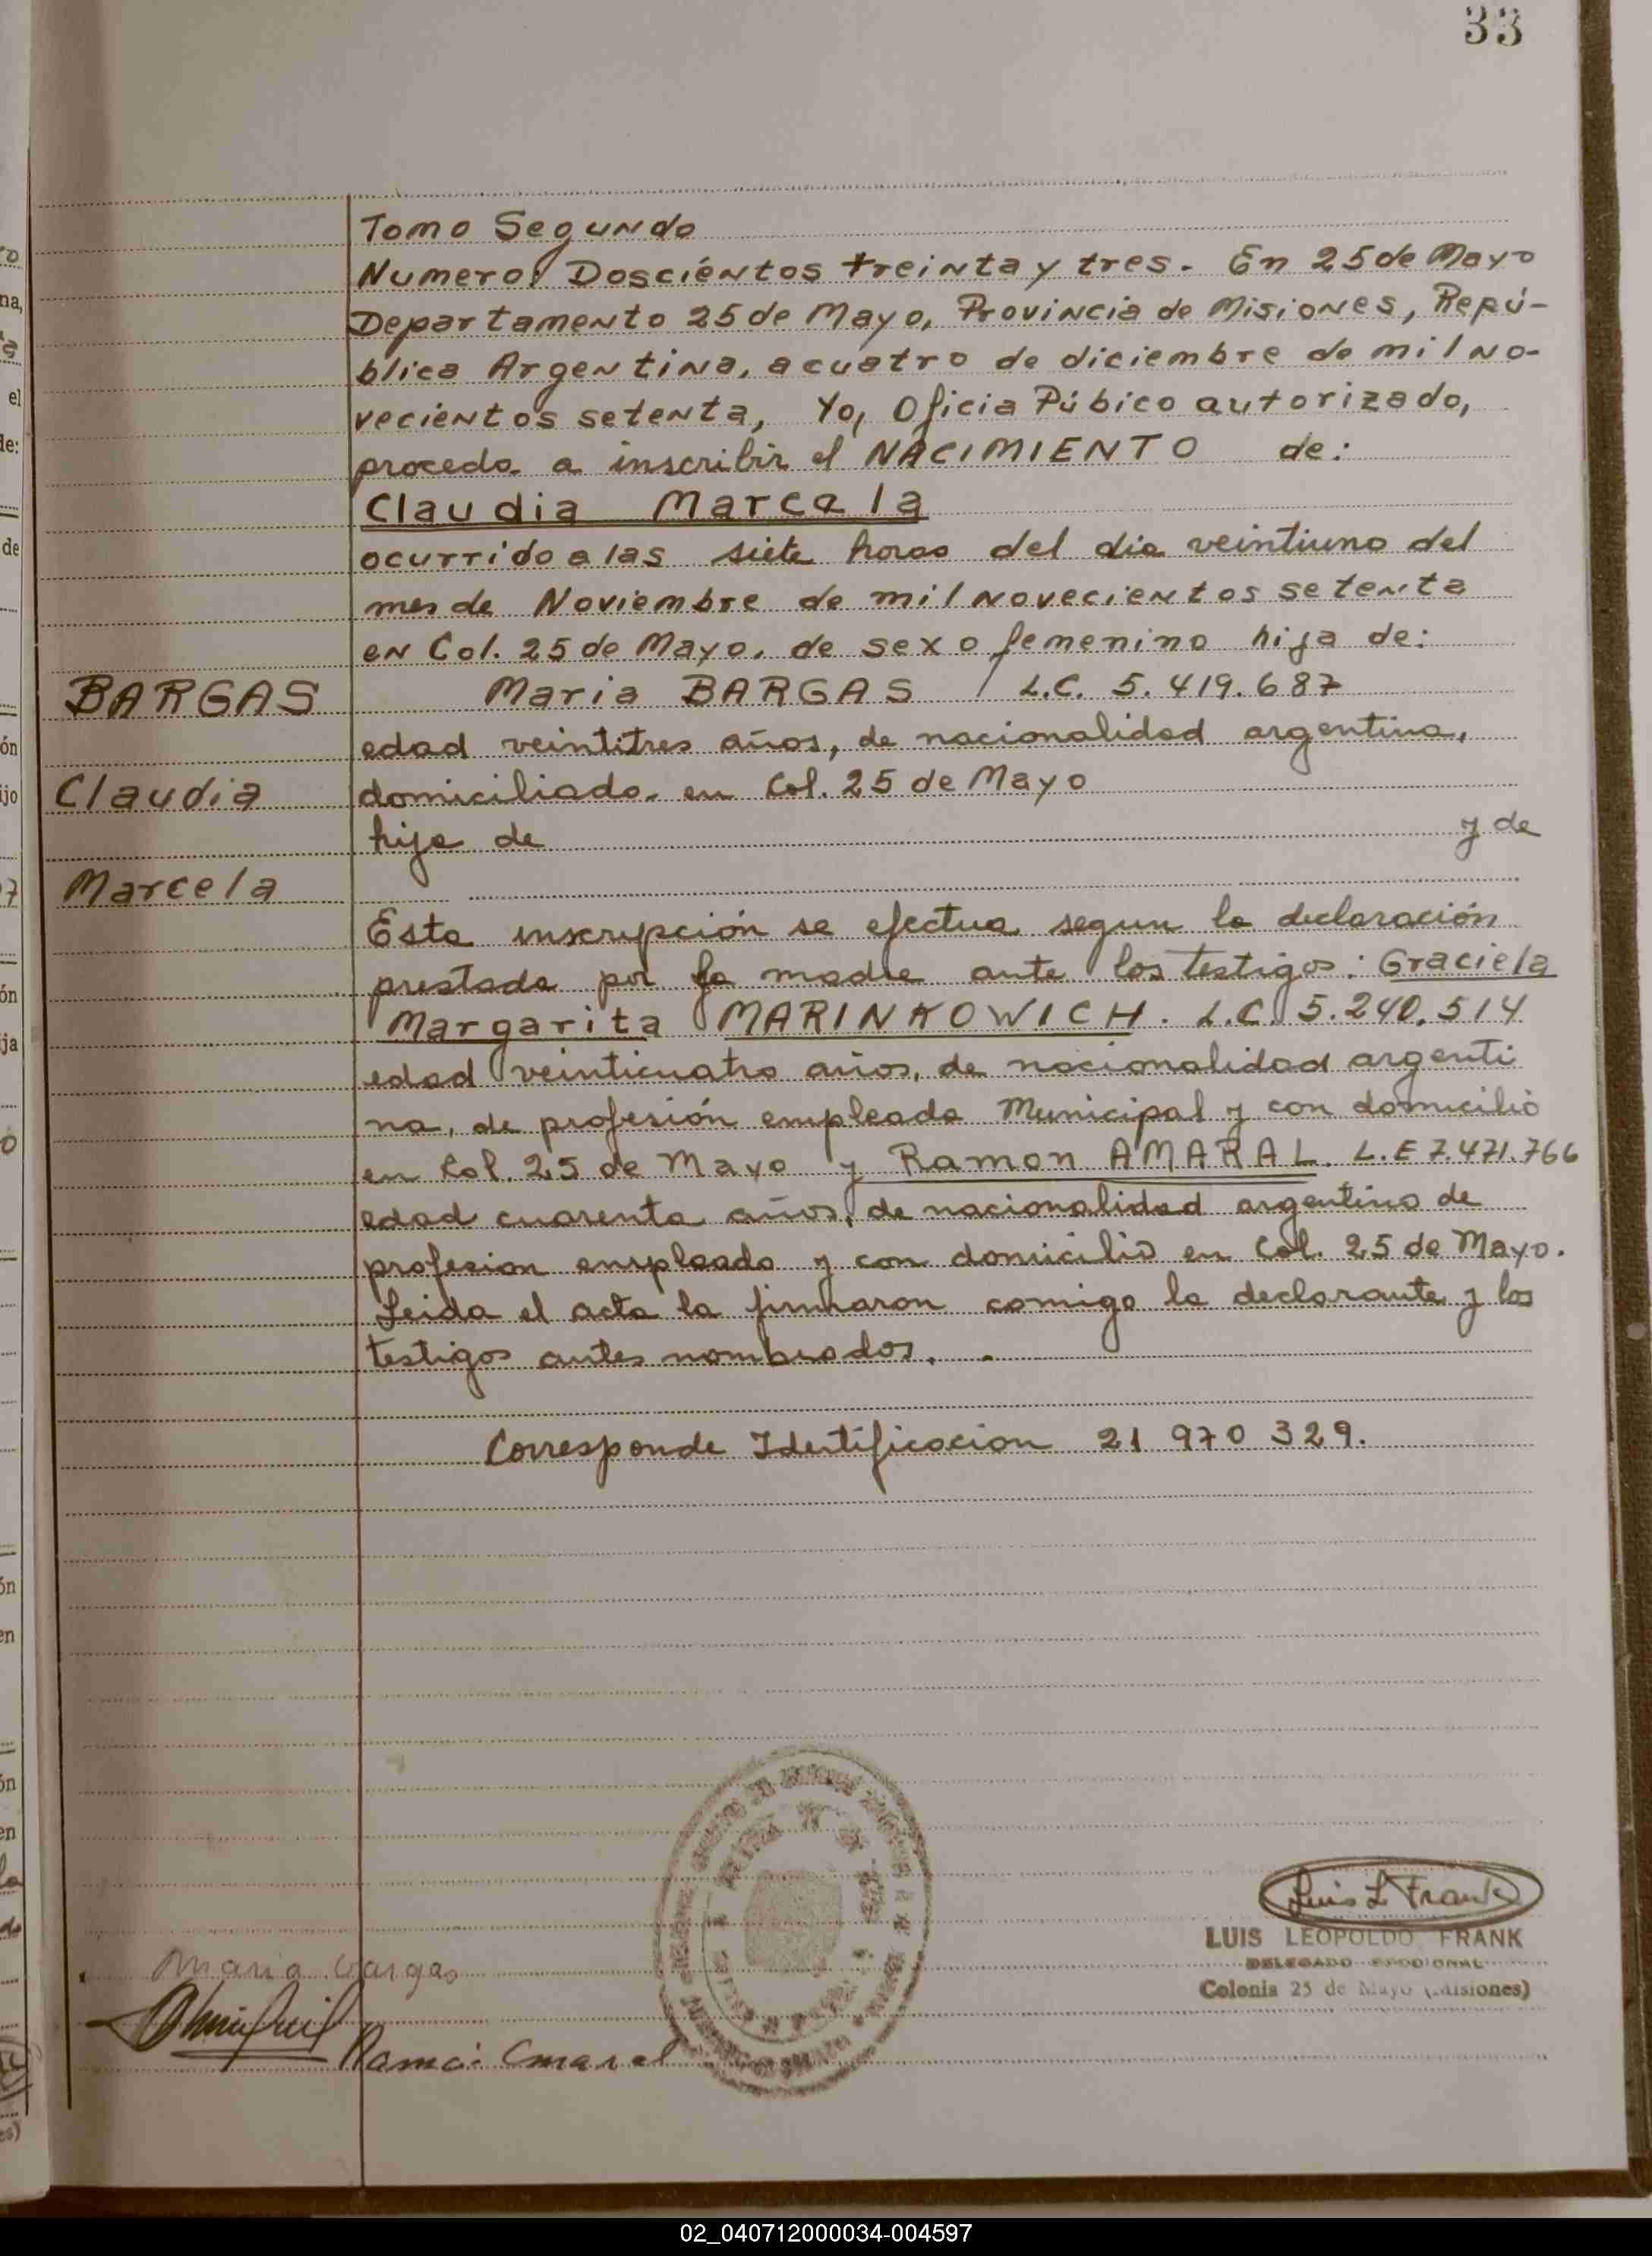 33
Tomo Segundo
Numero: Doscientos treinta y tres. En 25 de Mayo
Departamento 25 de Mayo, Provincia de Misiones, Repú-
blica Argentina, a cuatro de diciembre de mil no-
vecientos setenta, Yo, Oficia Púbico autorizado,
procedo a inscribir el NACIMIENTO de:
Claudia Marcela
ocurrido a las siete horas del dia veintiuno del
mes de Noviembre de mil novecientos setenta
en Col. 25 de Mayo, de sexo femenino hija de:
BARGAS Maria BARGAS L.C. 5.419.687
edad veintitres años, de nacionalidad argentina,
Claudia domiciliada en Col. 25 de Mayo
hija de y de
Marcela
Esta inscripción se efectua segun la declaración
prestada por la madre ante los testigos: Graciela
Margarita MARINKOWICH. L.C. 5.240.514
edad veinticuatro años, de nacionalidad argenti
na, de profesión empleada Municipal y con domicilio
en Col. 25 de Mayo y Ramon AMARAL. L.E 7.471.766
edad cuarenta años, de nacionalidad argentino de
profesion empleado y con domicilio en Col. 25 de Mayo.
Leida el acta la firmaron comigo la declarante y los
testigos antes nombrados. .
Corresponde Identificacion 21 970 329.
Luis L Frank
LUIS LEOPOLDO FRANK
DELEGADO
Colonia 25 de Mayo (Misiones)
Maria Vargas
Ramon Amaral
02_040712000034-004597